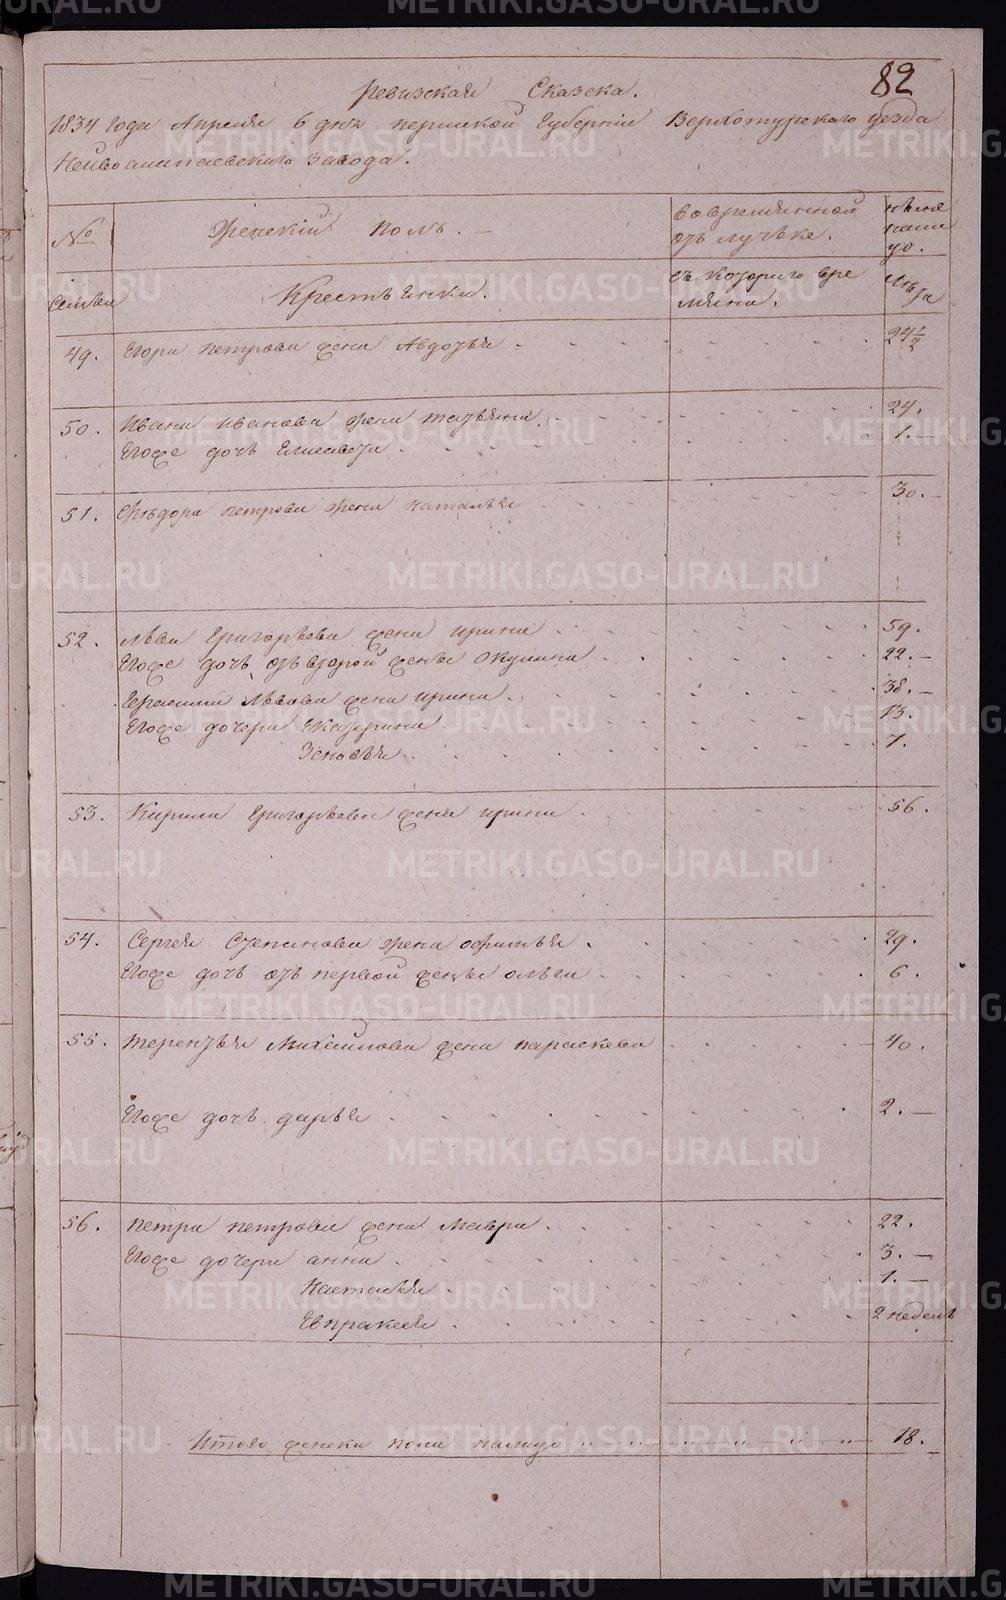 82
Ревизская Сказка.
1834 года Апреля 6 дня пермской Губерніи Верхотурскаго уезда
Нейвоалапаевскаго завода.
№ Женскій полъ. во временной отълучке. ныне налицо.
семьи Крестьянки. съ котораго времяни. Лѣта
49. Егора петрова жена Авдотья 24 1/2
50. Ивана иванова жена татьяна. 24.
Егоже дочь Елисавета 1.
51. Фѣдора петрова жена наталья 30.
52. Льва Григорьева жена ирина 59.
Егоже дочь отъ второй жены Окулина 22.
Герасима Львова жена ирина. 38.
Егоже дочери Екатерина 13.
Зеновья 7.
53. Кирила Григорьева жена ирина 56.
54. Сергея Степанова жена офимья. 29.
Егоже дочь отъ первой жены ольга 6.
55. терентья Михайлова жена параскева 40.
Егоже дочь дарья 2.
56. петра петрова жена Мавра 22.
Егоже дочери анна 3.
Наталья 1.
Евпраксея 2 недель
Итого женска пола налицо 18.
METRIKI.GASO-URAL.RU